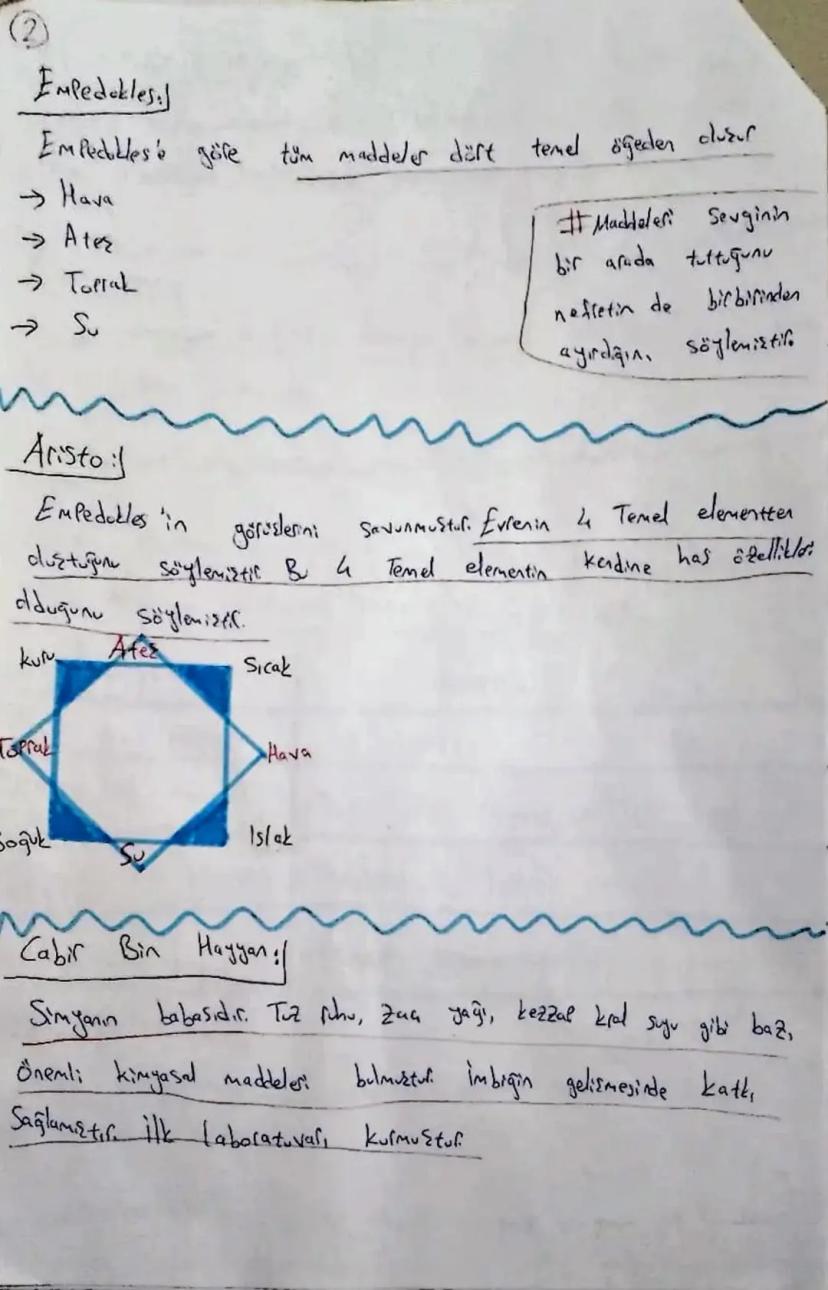 2
Empedokles:
Empedokles'e göre tüm maddeler dört temel ögeden oluşur
→ Hava
→ Ateş
→ Toprak
→ Su
# Maddeleri Sevginin
bir arada tuttuğunu
nefretin de birbirinden
ayırdığını söylemiştir.
Aristo:
Empedokles'in görüşlerini savunmuştur. Evrenin 4 Temel elementten
oluştuğunu söylemiştir Bu 4 Temel elementin kendine has özellikleri
olduğunu söylemiştir.
kuru Ateş Sıcak
Toprak Hava
Soğuk Su Islak
Cabir Bin Hayyan:
Simyanın babasıdır. Tuz ruhu, zaç yağı, kezzap kral suyu gibi bazı
Önemli kimyasal maddeleri bulmuştur. İmbiğin gelişmesinde katkı
Sağlamıştır. İlk Laboratuvarı kurmuştur.